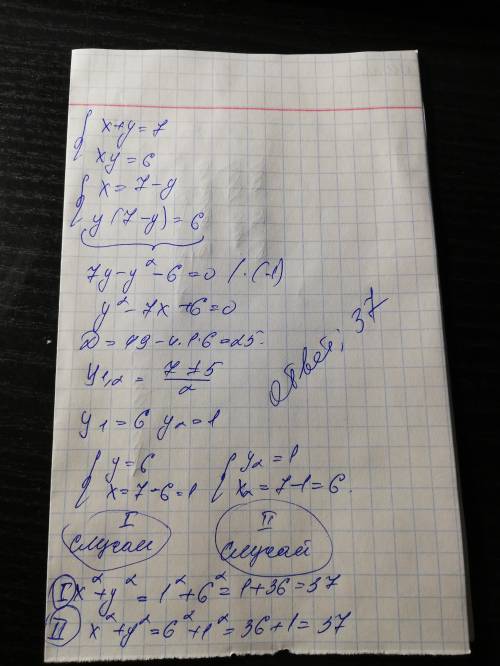 x+y=7
xy=6
x=7-y
y(7-y)=6
7y-y²-6=0 |·(-1)
y²-7x+6=0
D=49-4·1·6=25.
y₁,₂ = (7±5)/2
Ответ: 37
y₁=6 y₂=1
y=6
x=7-6=1
y₂=1
x₂=7-1=6.
I
случай
II
случай
I x²+y²=1²+6²=1+36=37
II x²+y²=6²+1²=36+1=37